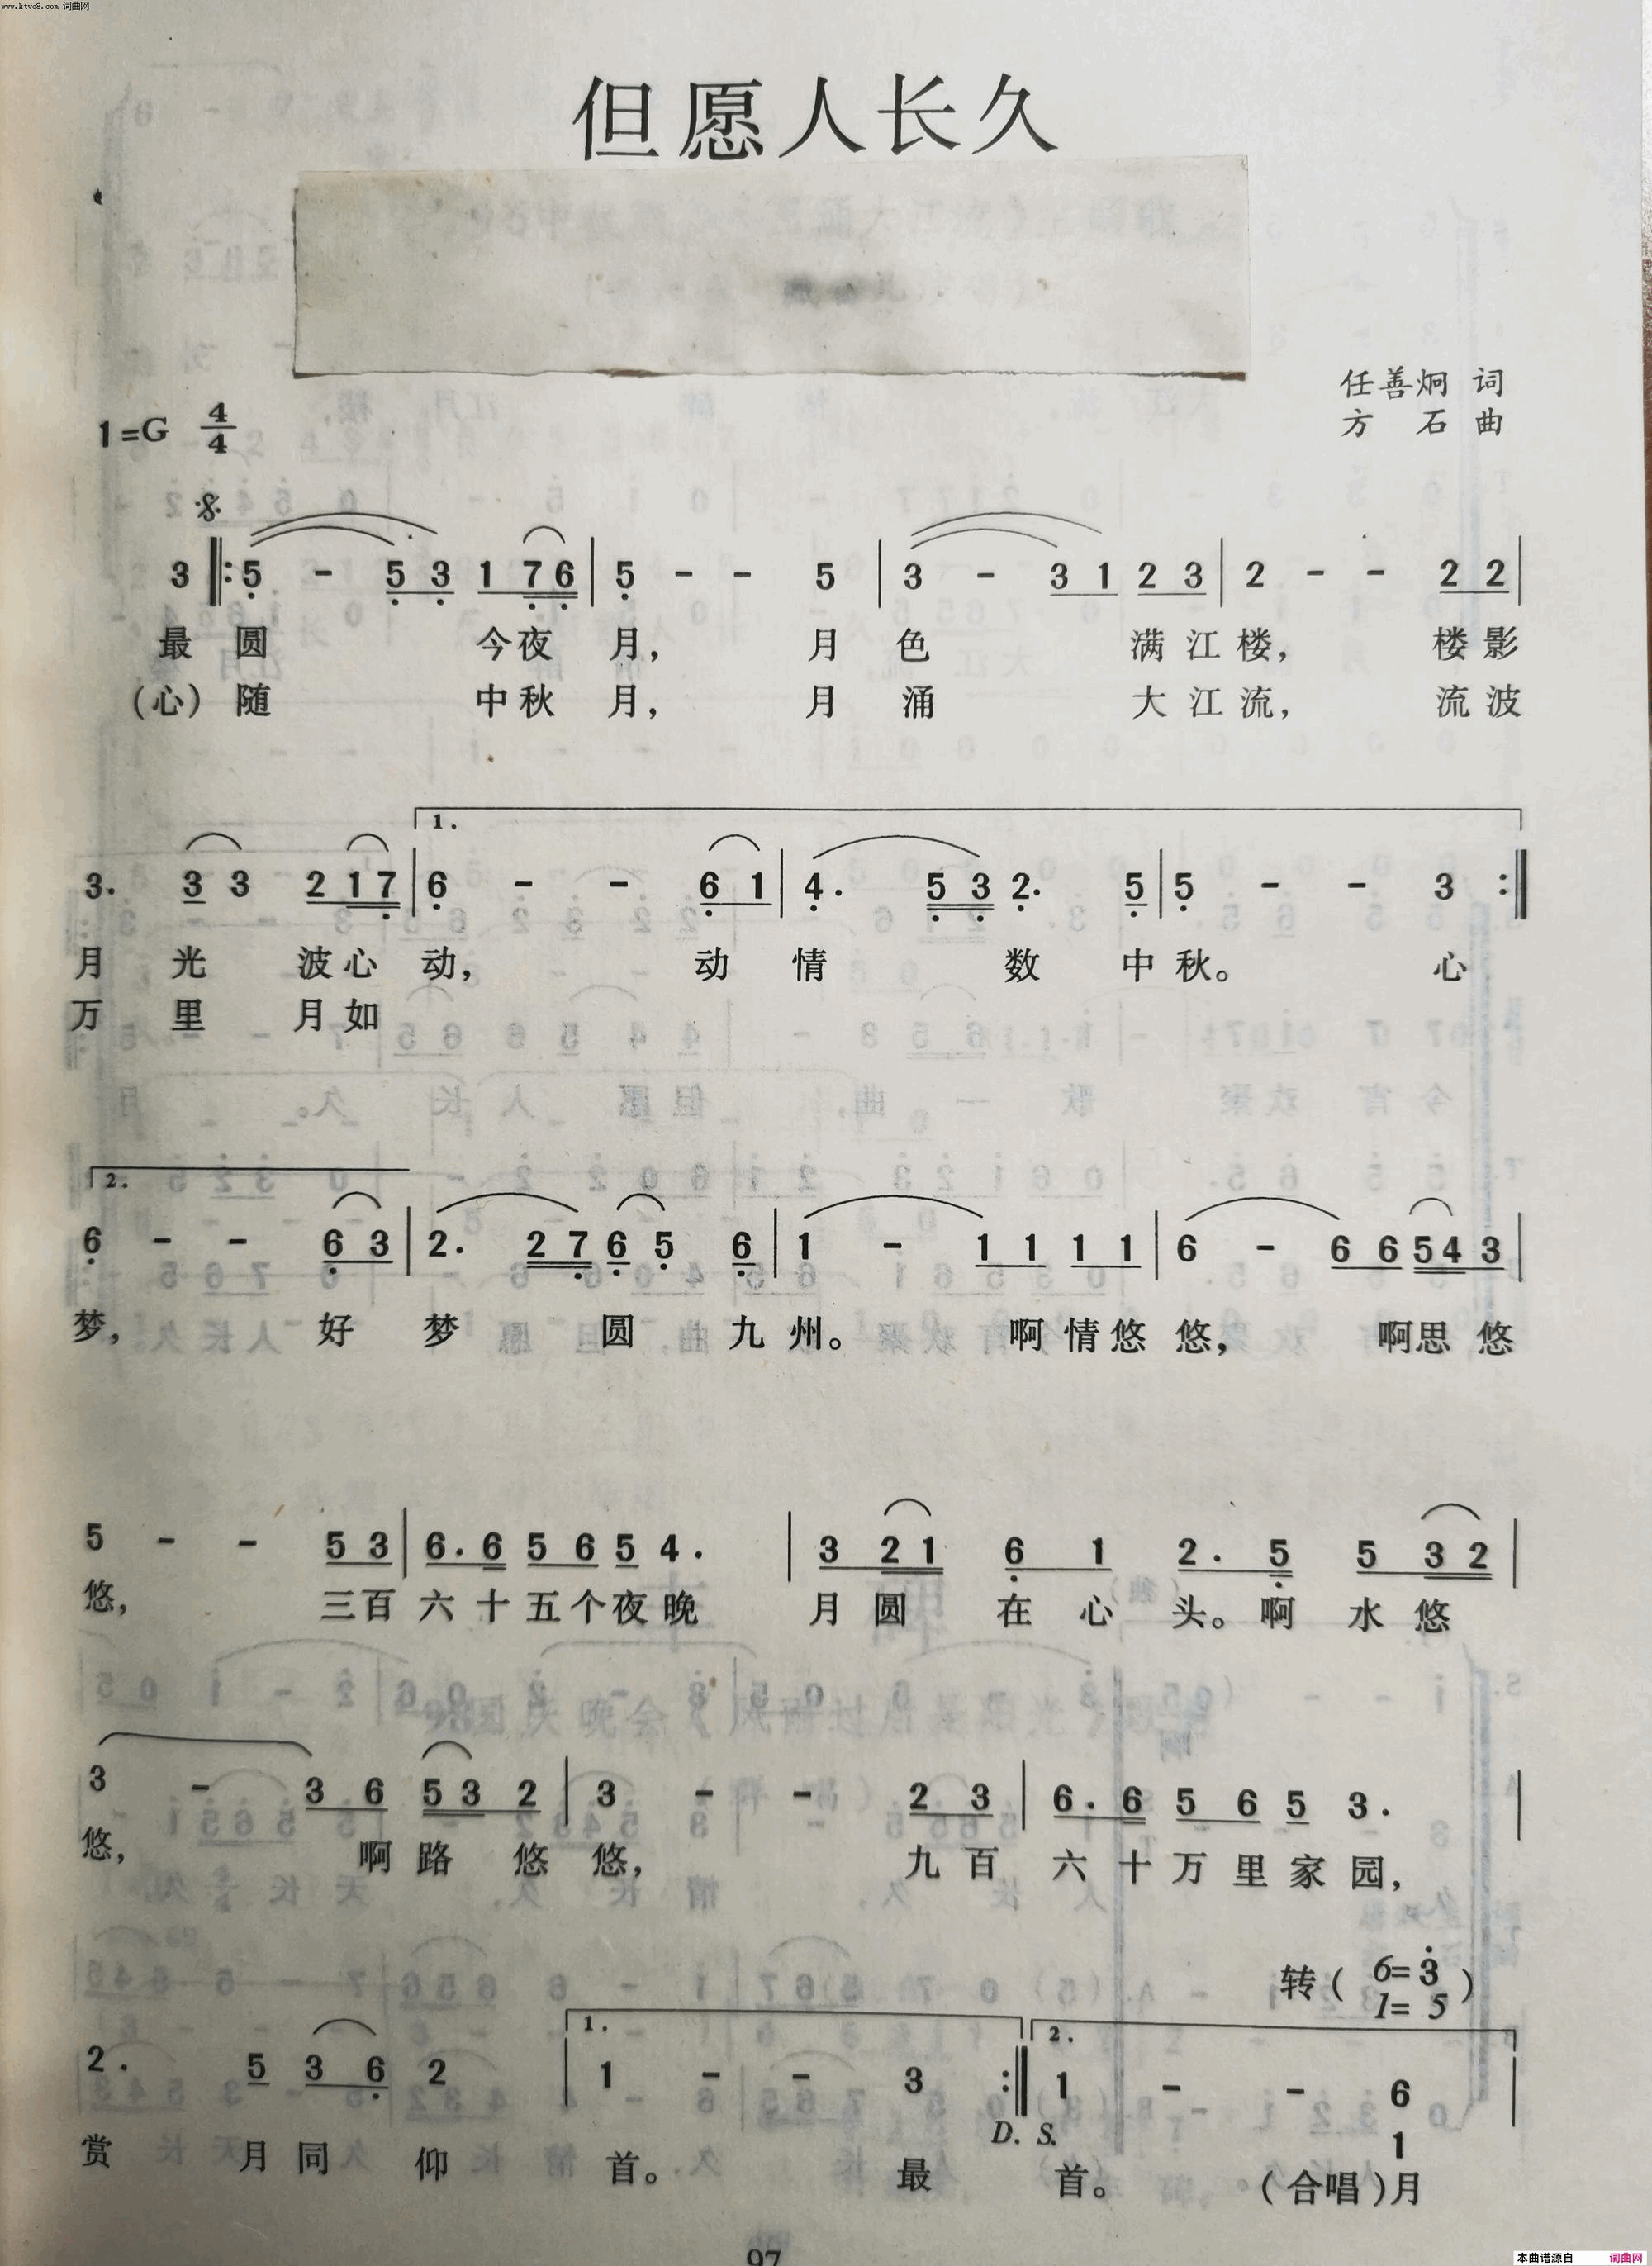 www.ktvc8.com 词曲网
但愿人长久
任善炯 词
1=G 4/4
方 石 曲
3 |: 5 - 5 3 1 7 6 | 5 - - 5 | 3 - 3 1 2 3 | 2 - - 2 2 |
最 圆 今夜 月, 月 色 满 江 楼, 楼 影
(心) 随 中秋 月, 月 涌 大 江 流, 流 波
1.
3. 3 3 2 1 7 | 6 - - 6 1 | 4. 5 3 2. 5 | 5 - - 3 :|
月 光 波心 动, 动 情 数 中 秋。 心
万 里 月 如
2.
6 - - 6 3 | 2. 2 7 6 5 6 | 1 - 1 1 1 1 | 6 - 6 6 5 4 3 |
梦, 好 梦 圆 九 州。 啊 情 悠 悠, 啊思 悠
5 - - 5 3 | 6. 6 5 6 5 4. | 3 2 1 6 1 2. 5 5 3 2 |
悠, 三百 六 十 五 个 夜 晚 月 圆 在 心 头。 啊 水 悠
3 - 3 6 5 3 2 | 3 - - 2 3 | 6. 6 5 6 5 3. |
悠, 啊 路 悠 悠, 九 百 六 十 万 里 家 园,
转( 6=3 1=5 )
1. 2.
2. 5 3 6 2 | 1 - - 3 :| 1 - - 6 |
D. S. 1
赏 月 同 仰 首。 最 首。 (合唱)月
97
本曲谱源自 词曲网